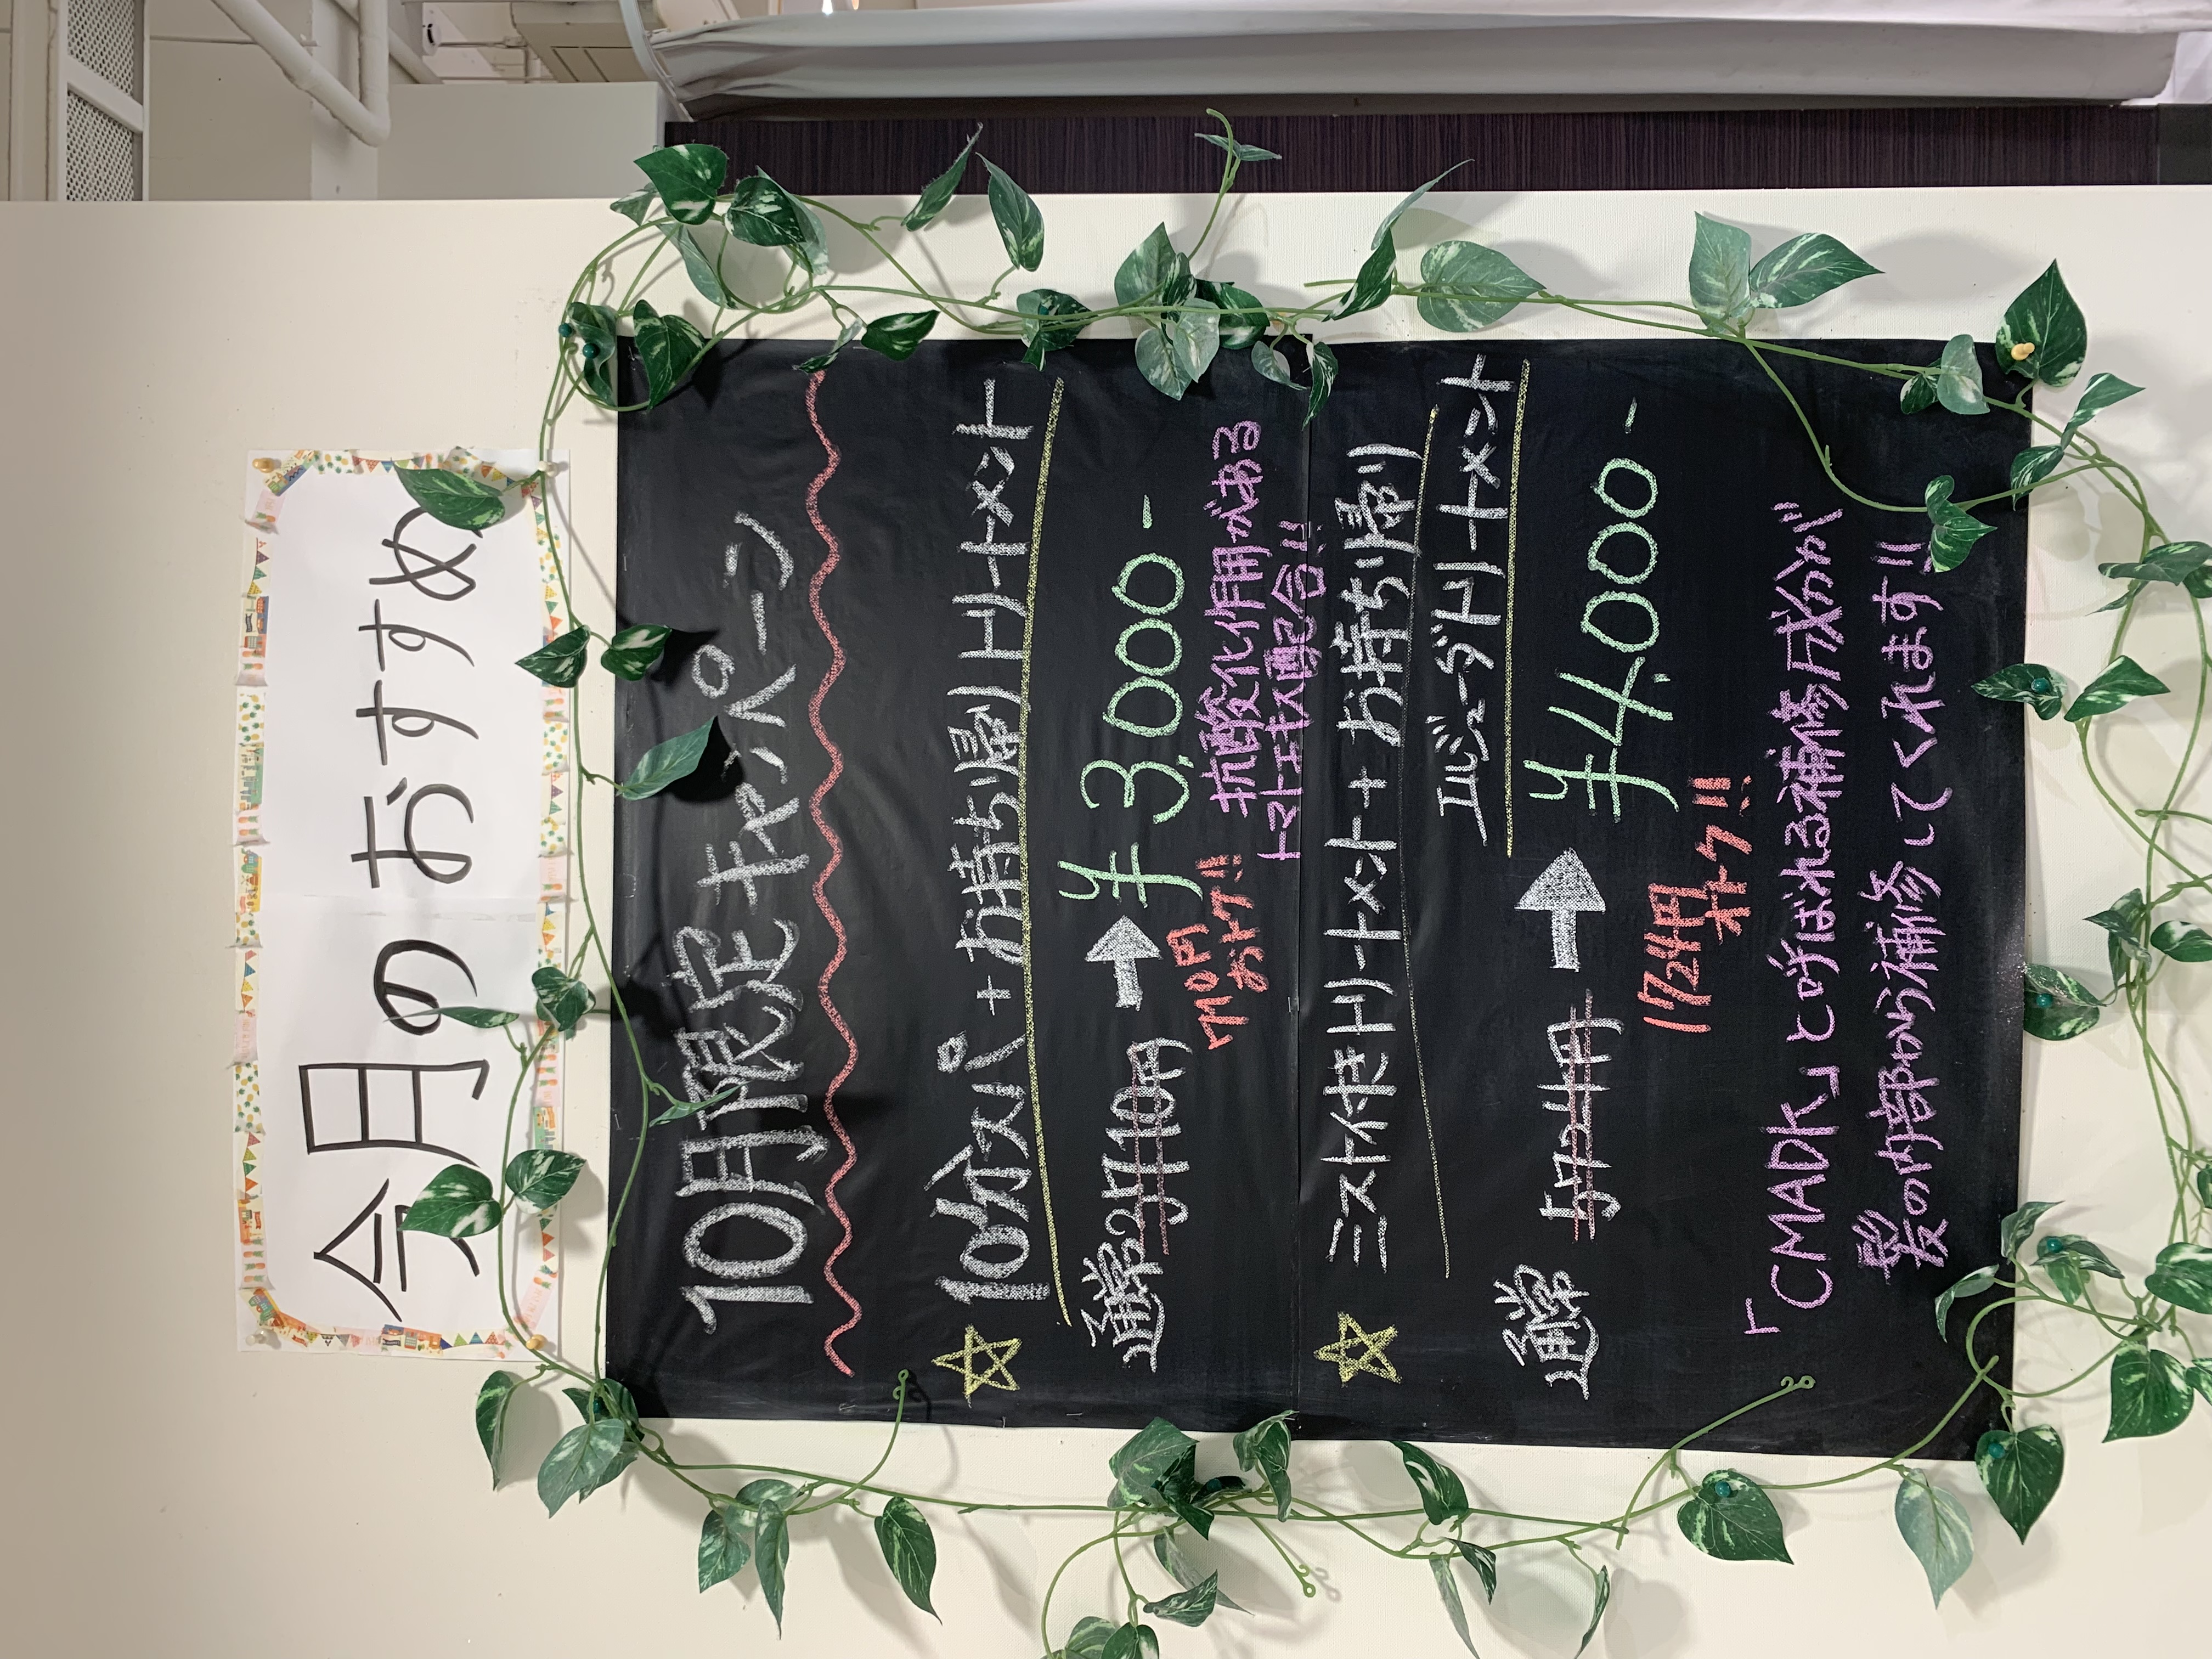 今月のおすすめ
10月限定 キャンペーン
☆ 10分スパ + お持ち帰りトリートメント
通常 3710円 → ¥3,000-
710円
おトク!!
抗酸化作用がある
トマトエキス配合!!
☆ ミスト付トリートメント + お持ち帰り
エルジューダトリートメント
通常 5724円 → ¥4,000-
1724円
おトク!!
「CMADK」と呼ばれる補修成分が
髪の内部から補修してくれます!!